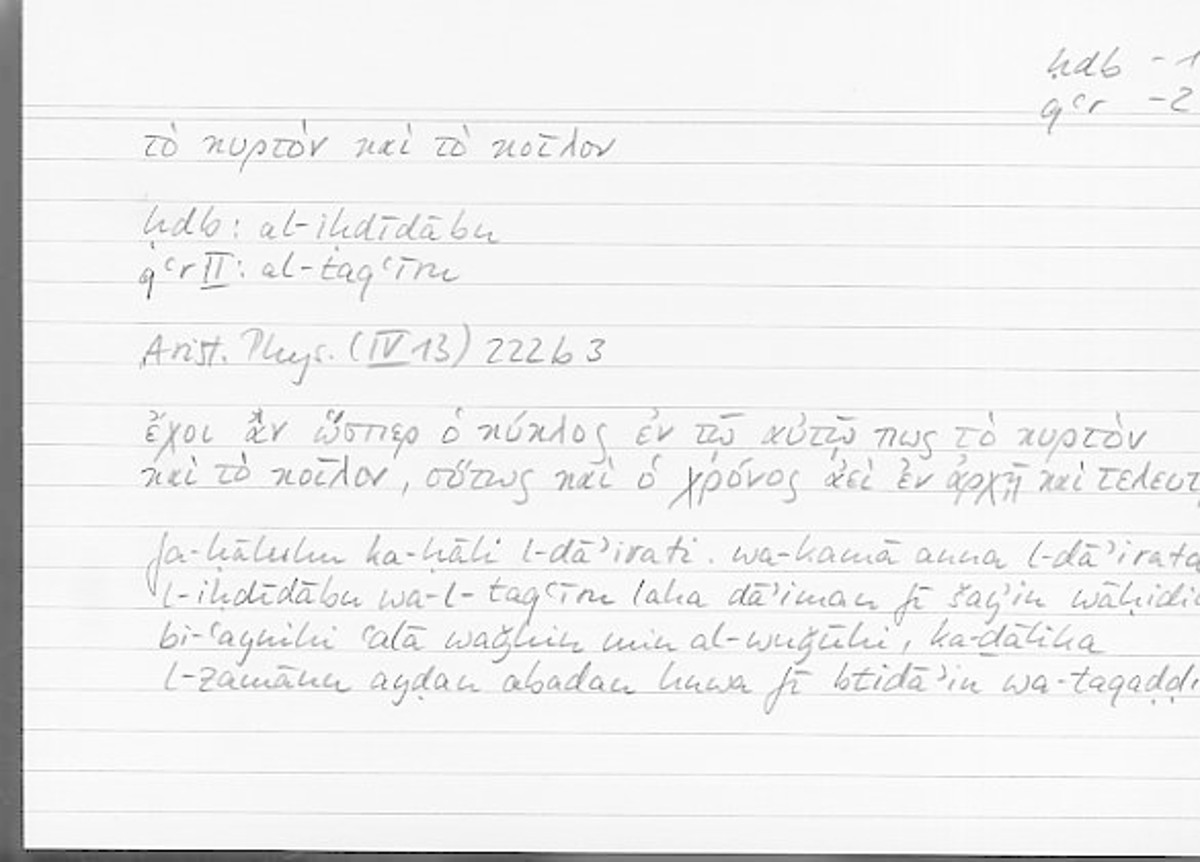 ḥdb - 1
qʿr - 2
τὸ κυρτόν καὶ τὸ κοῖλον
ḥdb: al-iḥdīdābu
qʿr II: al-taqʿīru
Arist. Phys. (IV 13) 222b3
ἔχοι ἂν ὥσπερ ὁ κύκλος ἐν τῷ αὐτῷ πως τὸ κυρτὸν
καὶ τὸ κοῖλον, οὕτως καὶ ὁ χρόνος ἀεὶ ἐν ἀρχῇ καὶ τελευτ
fa-ḥāluhu ka-ḥāli l-dāʾirati. wa-kamā anna l-dāʾirata
l-iḥdīdābu wa-l-taqʿīru laha dāʾiman fī šayʾin wāḥidi
bi-ʿaynihi ʿalā waǧhin min al-wuǧūhi, ka-ḏālika
l-zamānu ayḍan abadan huwa fī btidāʾin wa-taqaḍḍi